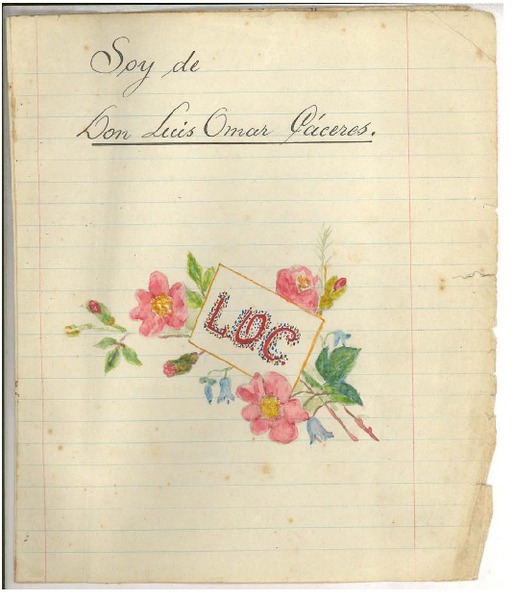 Soy de
Don Luis Omar Cáceres.
LOC